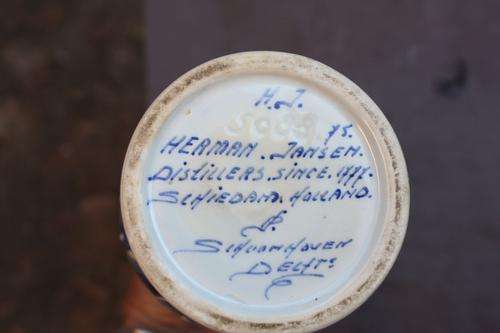 H.J.
75.
HERMAN. JANSEN.
DISTILLERS. SINCE. 1777.
SCHIEDAM. HOLLAND.
SCHOONHOVEN
DELFTS